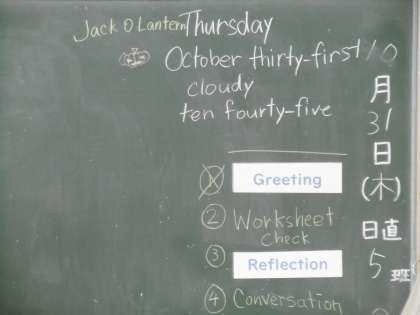 Jack O Lantern Thursday
October thirty-first
cloudy
ten fourty-five
① Greeting
② Worksheet
Check
③ Reflection
④ Conversation
10
月
31
日
(木)
日直
5班